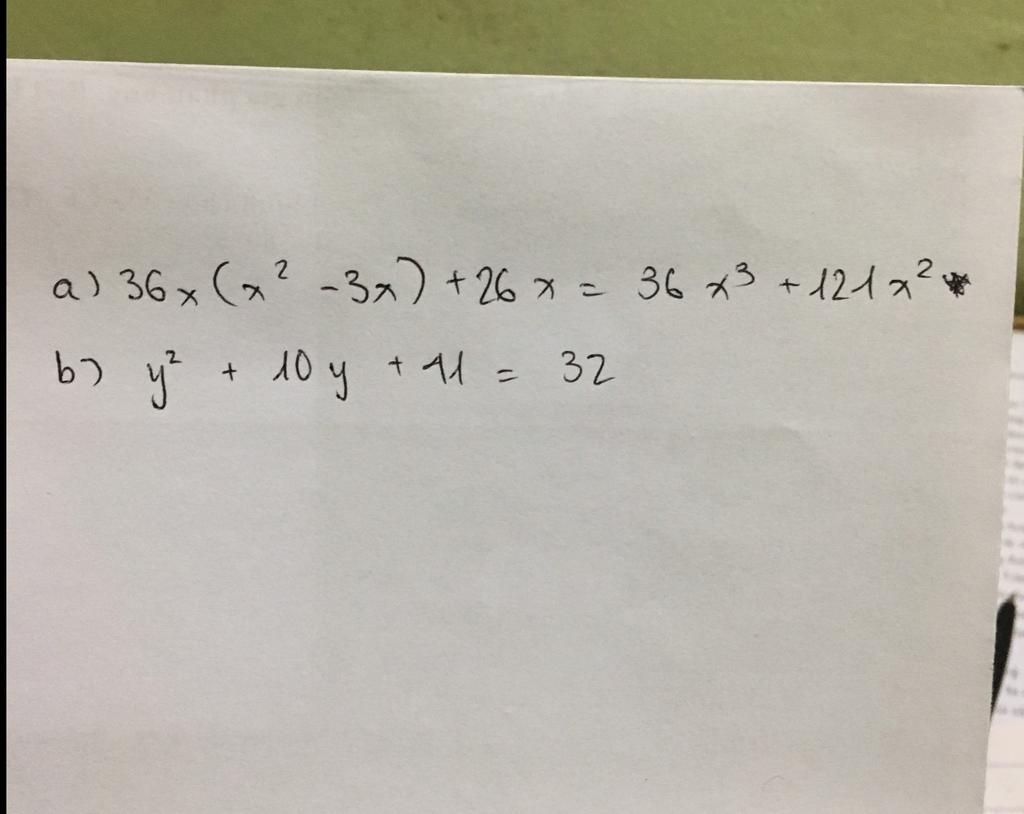 a) 36x(x² - 3x) + 26x = 36x³ + 121x²
b) y² + 10y + 41 = 32